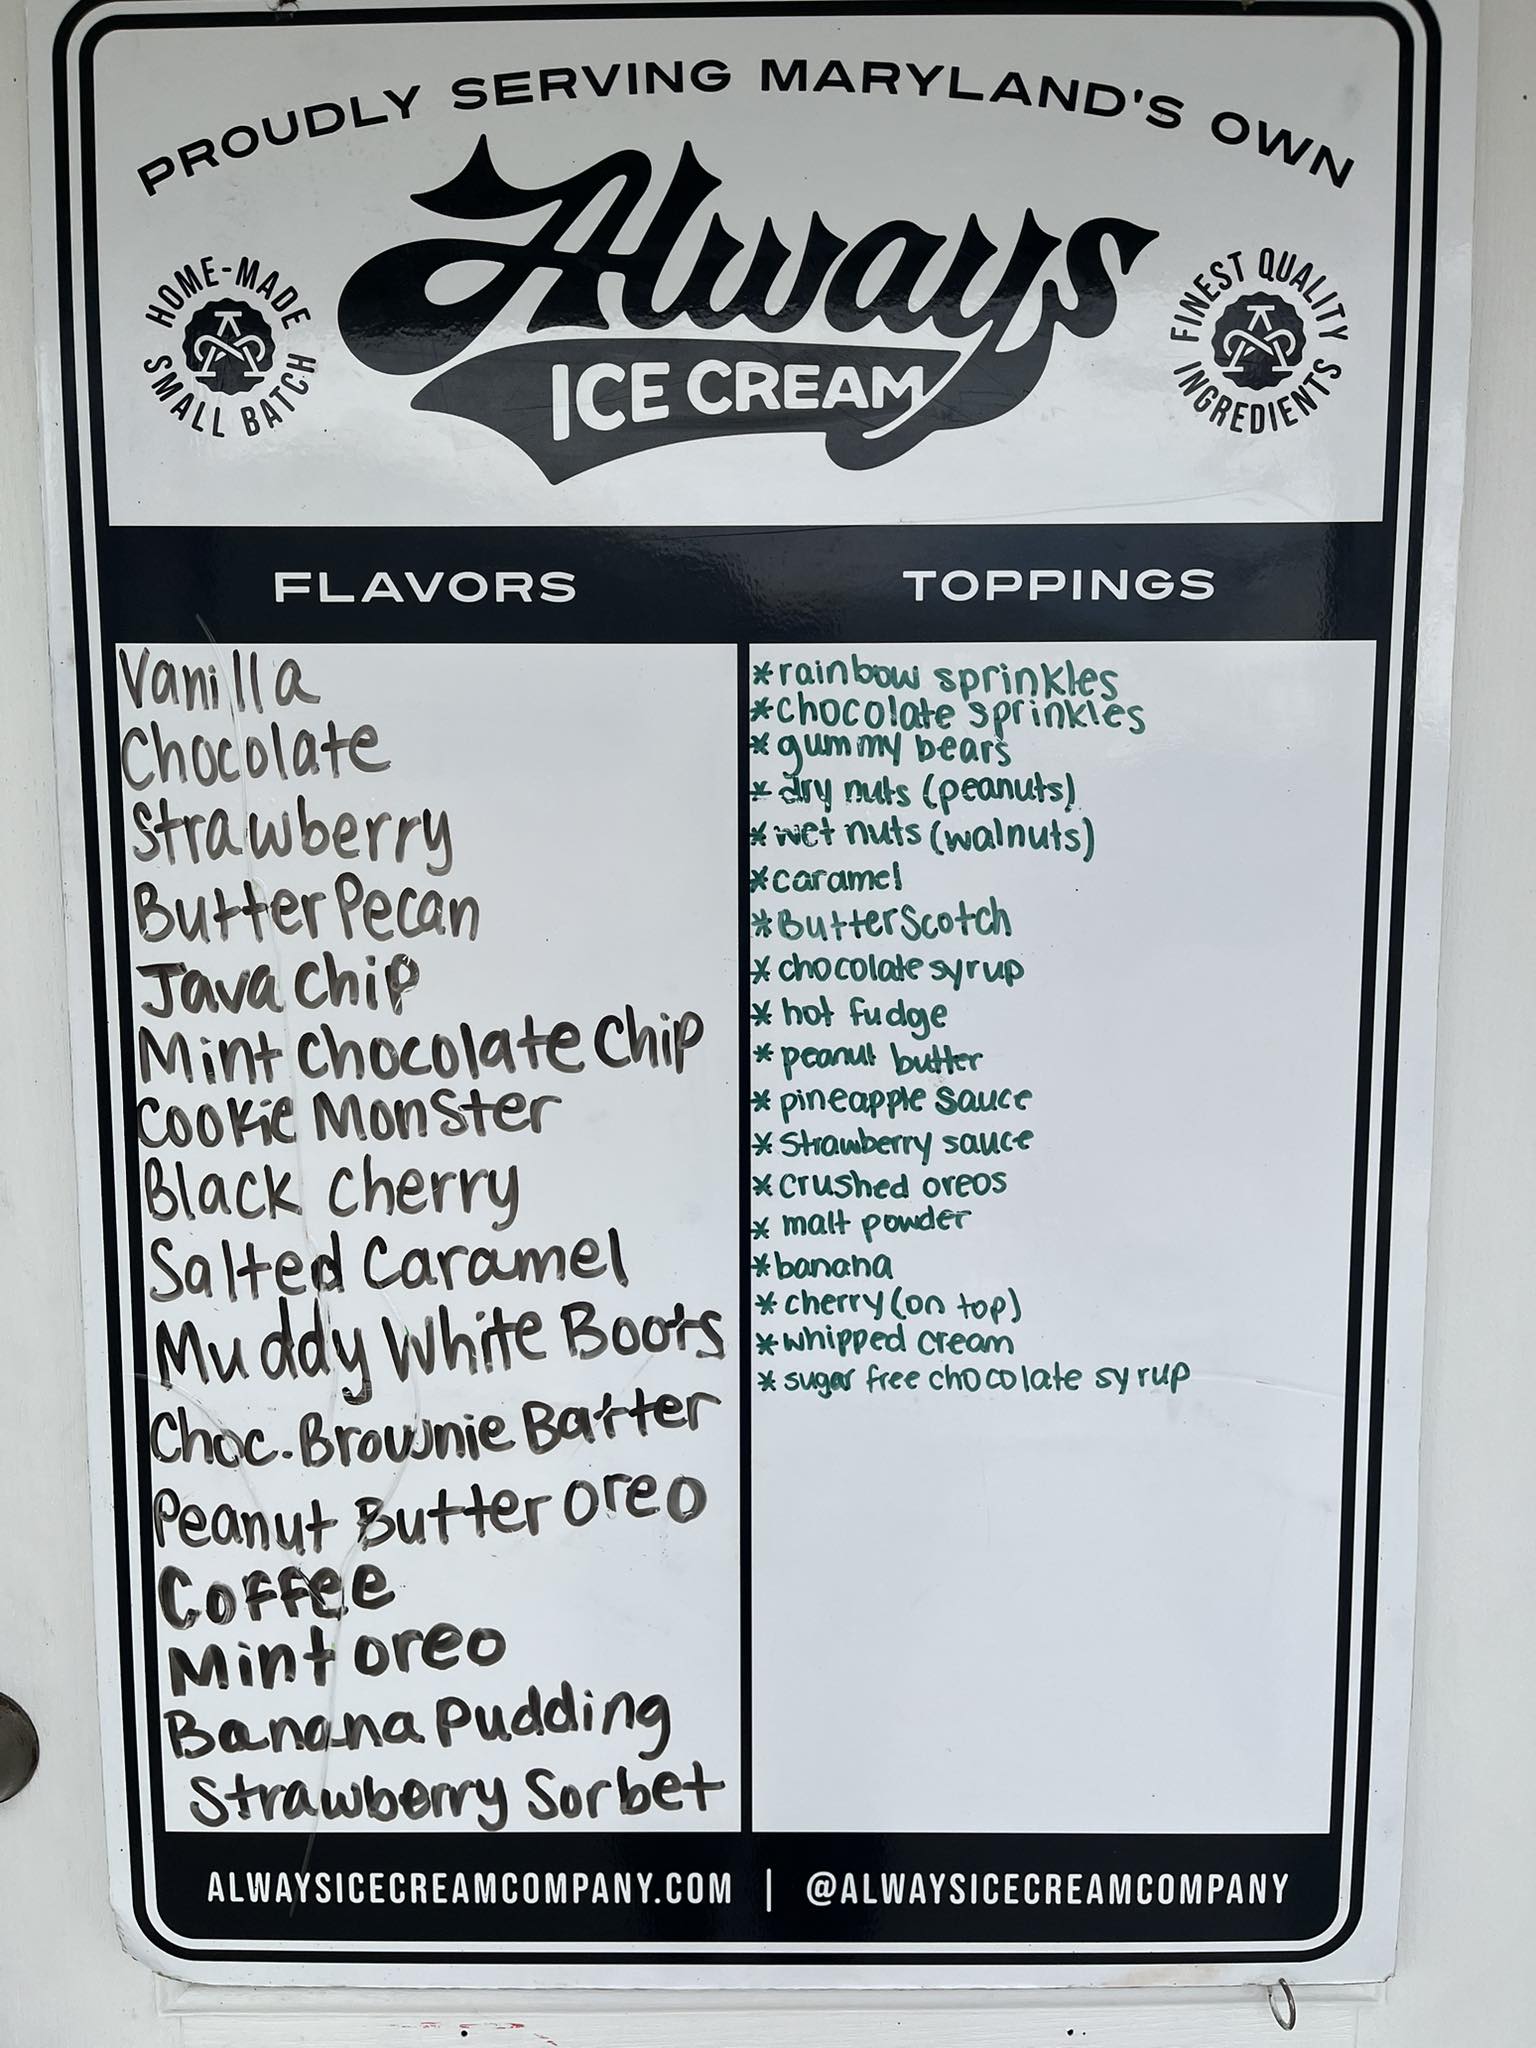 PROUDLY SERVING MARYLAND'S OWN
Always
ICE CREAM
HOME-MADE
SMALL BATCH
FINEST QUALITY
INGREDIENTS
FLAVORS
Vanilla
Chocolate
Strawberry
Butter Pecan
Java Chip
Mint Chocolate Chip
Cookie Monster
Black Cherry
Salted Caramel
Muddy White Boots
Choc. Brownie Batter
Peanut Butter Oreo
Coffee
Mint Oreo
Banana Pudding
Strawberry Sorbet
TOPPINGS
* rainbow sprinkles
* chocolate sprinkles
* gummy bears
* dry nuts (peanuts)
* wet nuts (walnuts)
* caramel
* ButterScotch
* chocolate syrup
* hot fudge
* peanut butter
* pineapple sauce
* Strawberry sauce
* crushed oreos
* malt powder
* banana
* cherry (on top)
* whipped cream
* sugar free chocolate syrup
ALWAYSICECREAMCOMPANY.COM | @ALWAYSICECREAMCOMPANY